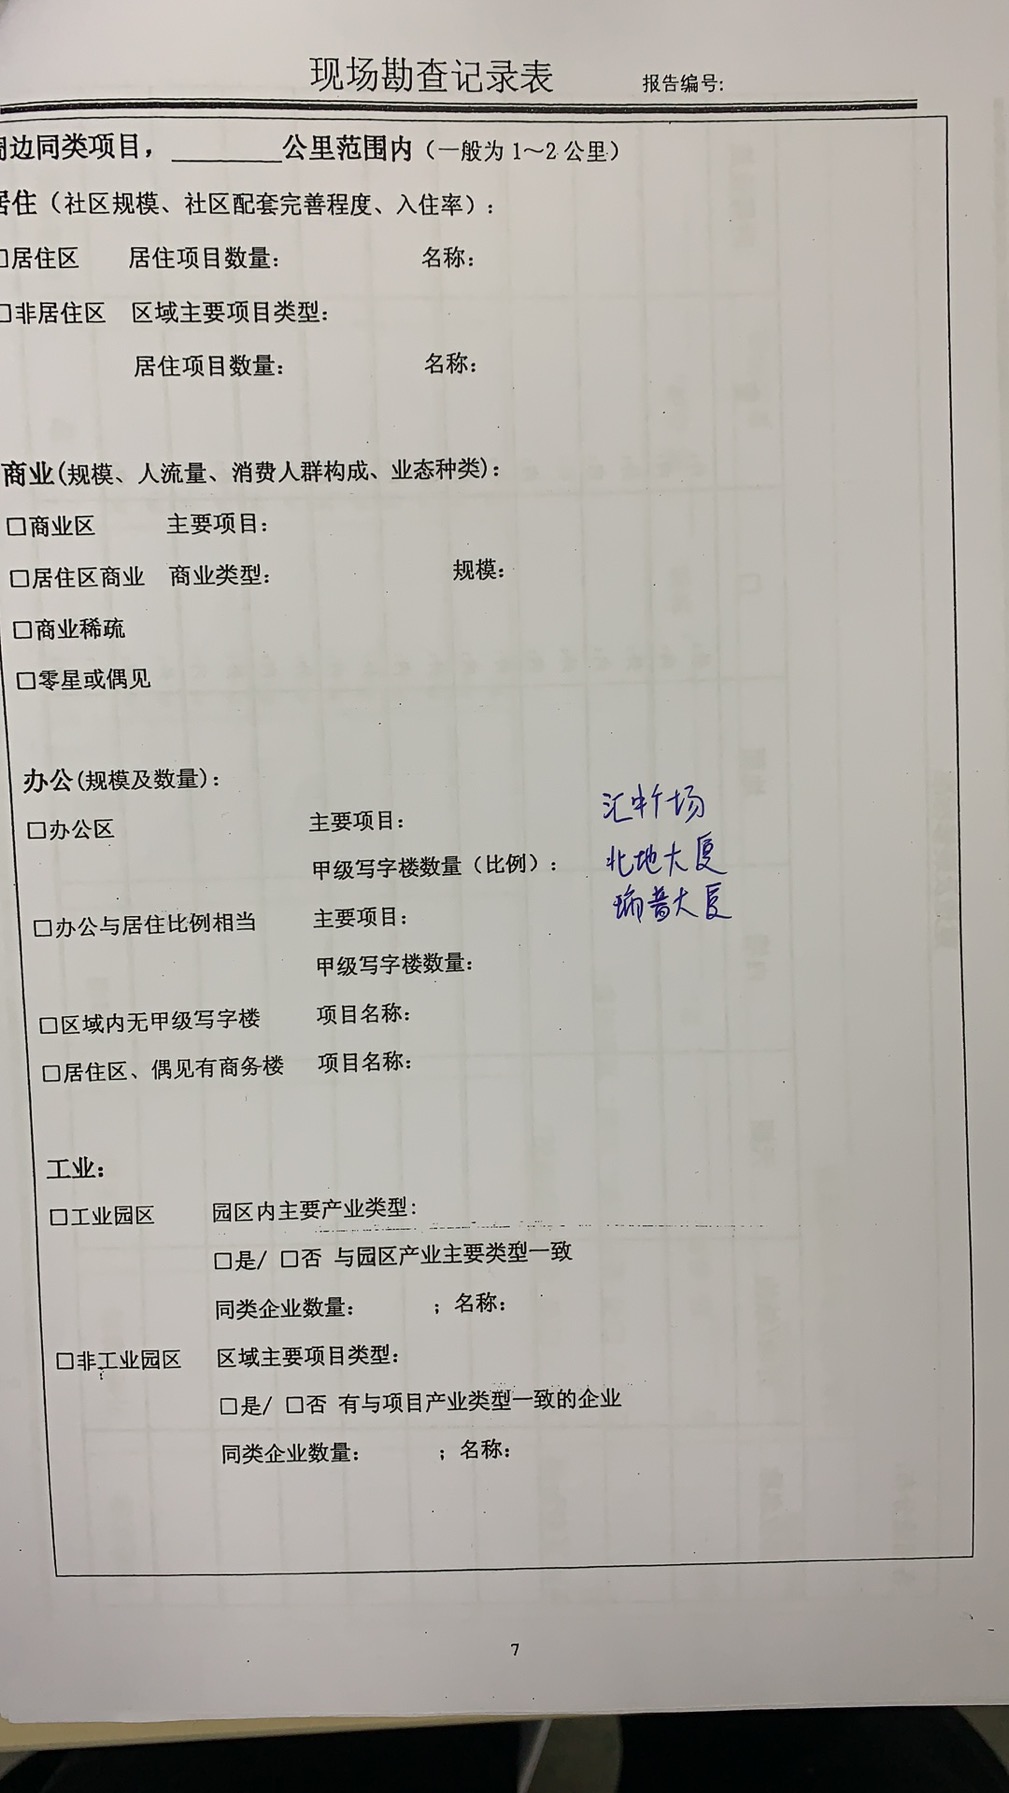 现场勘查记录表 报告编号:
周边同类项目，________公里范围内（一般为 1～2 公里）
居住（社区规模、社区配套完善程度、入住率）：
□居住区 居住项目数量： 名称：
□非居住区 区域主要项目类型：
居住项目数量： 名称：
商业(规模、人流量、消费人群构成、业态种类)：
□商业区 主要项目：
□居住区商业 商业类型： 规模：
□商业稀疏
□零星或偶见
办公(规模及数量)：
□办公区 主要项目：
甲级写字楼数量（比例）： 北地大厦
□办公与居住比例相当 主要项目： 瑞普大厦
甲级写字楼数量：
□区域内无甲级写字楼 项目名称：
□居住区、偶见有商务楼 项目名称：
工业：
□工业园区 园区内主要产业类型：
□是/ □否 与园区产业主要类型一致
同类企业数量： ；名称：
□非工业园区 区域主要项目类型：
□是/ □否 有与项目产业类型一致的企业
同类企业数量： ；名称：
7